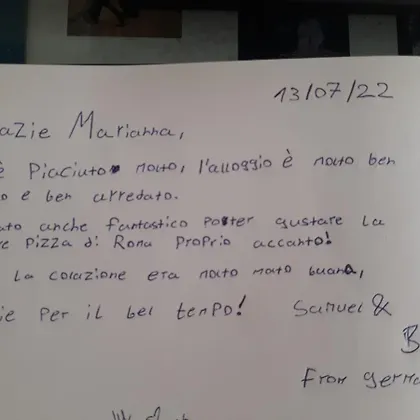 13/07/22
azie Marianna,
è Piaciuto molto, l'alloggio è molto ben
o e ben arredato.
ato anche fantastico poter gustare la
e Pizza di Roma Proprio accanto!
La colazione era molto molto buona,
ie Per il bel temPo! Samuel &
B
From germa